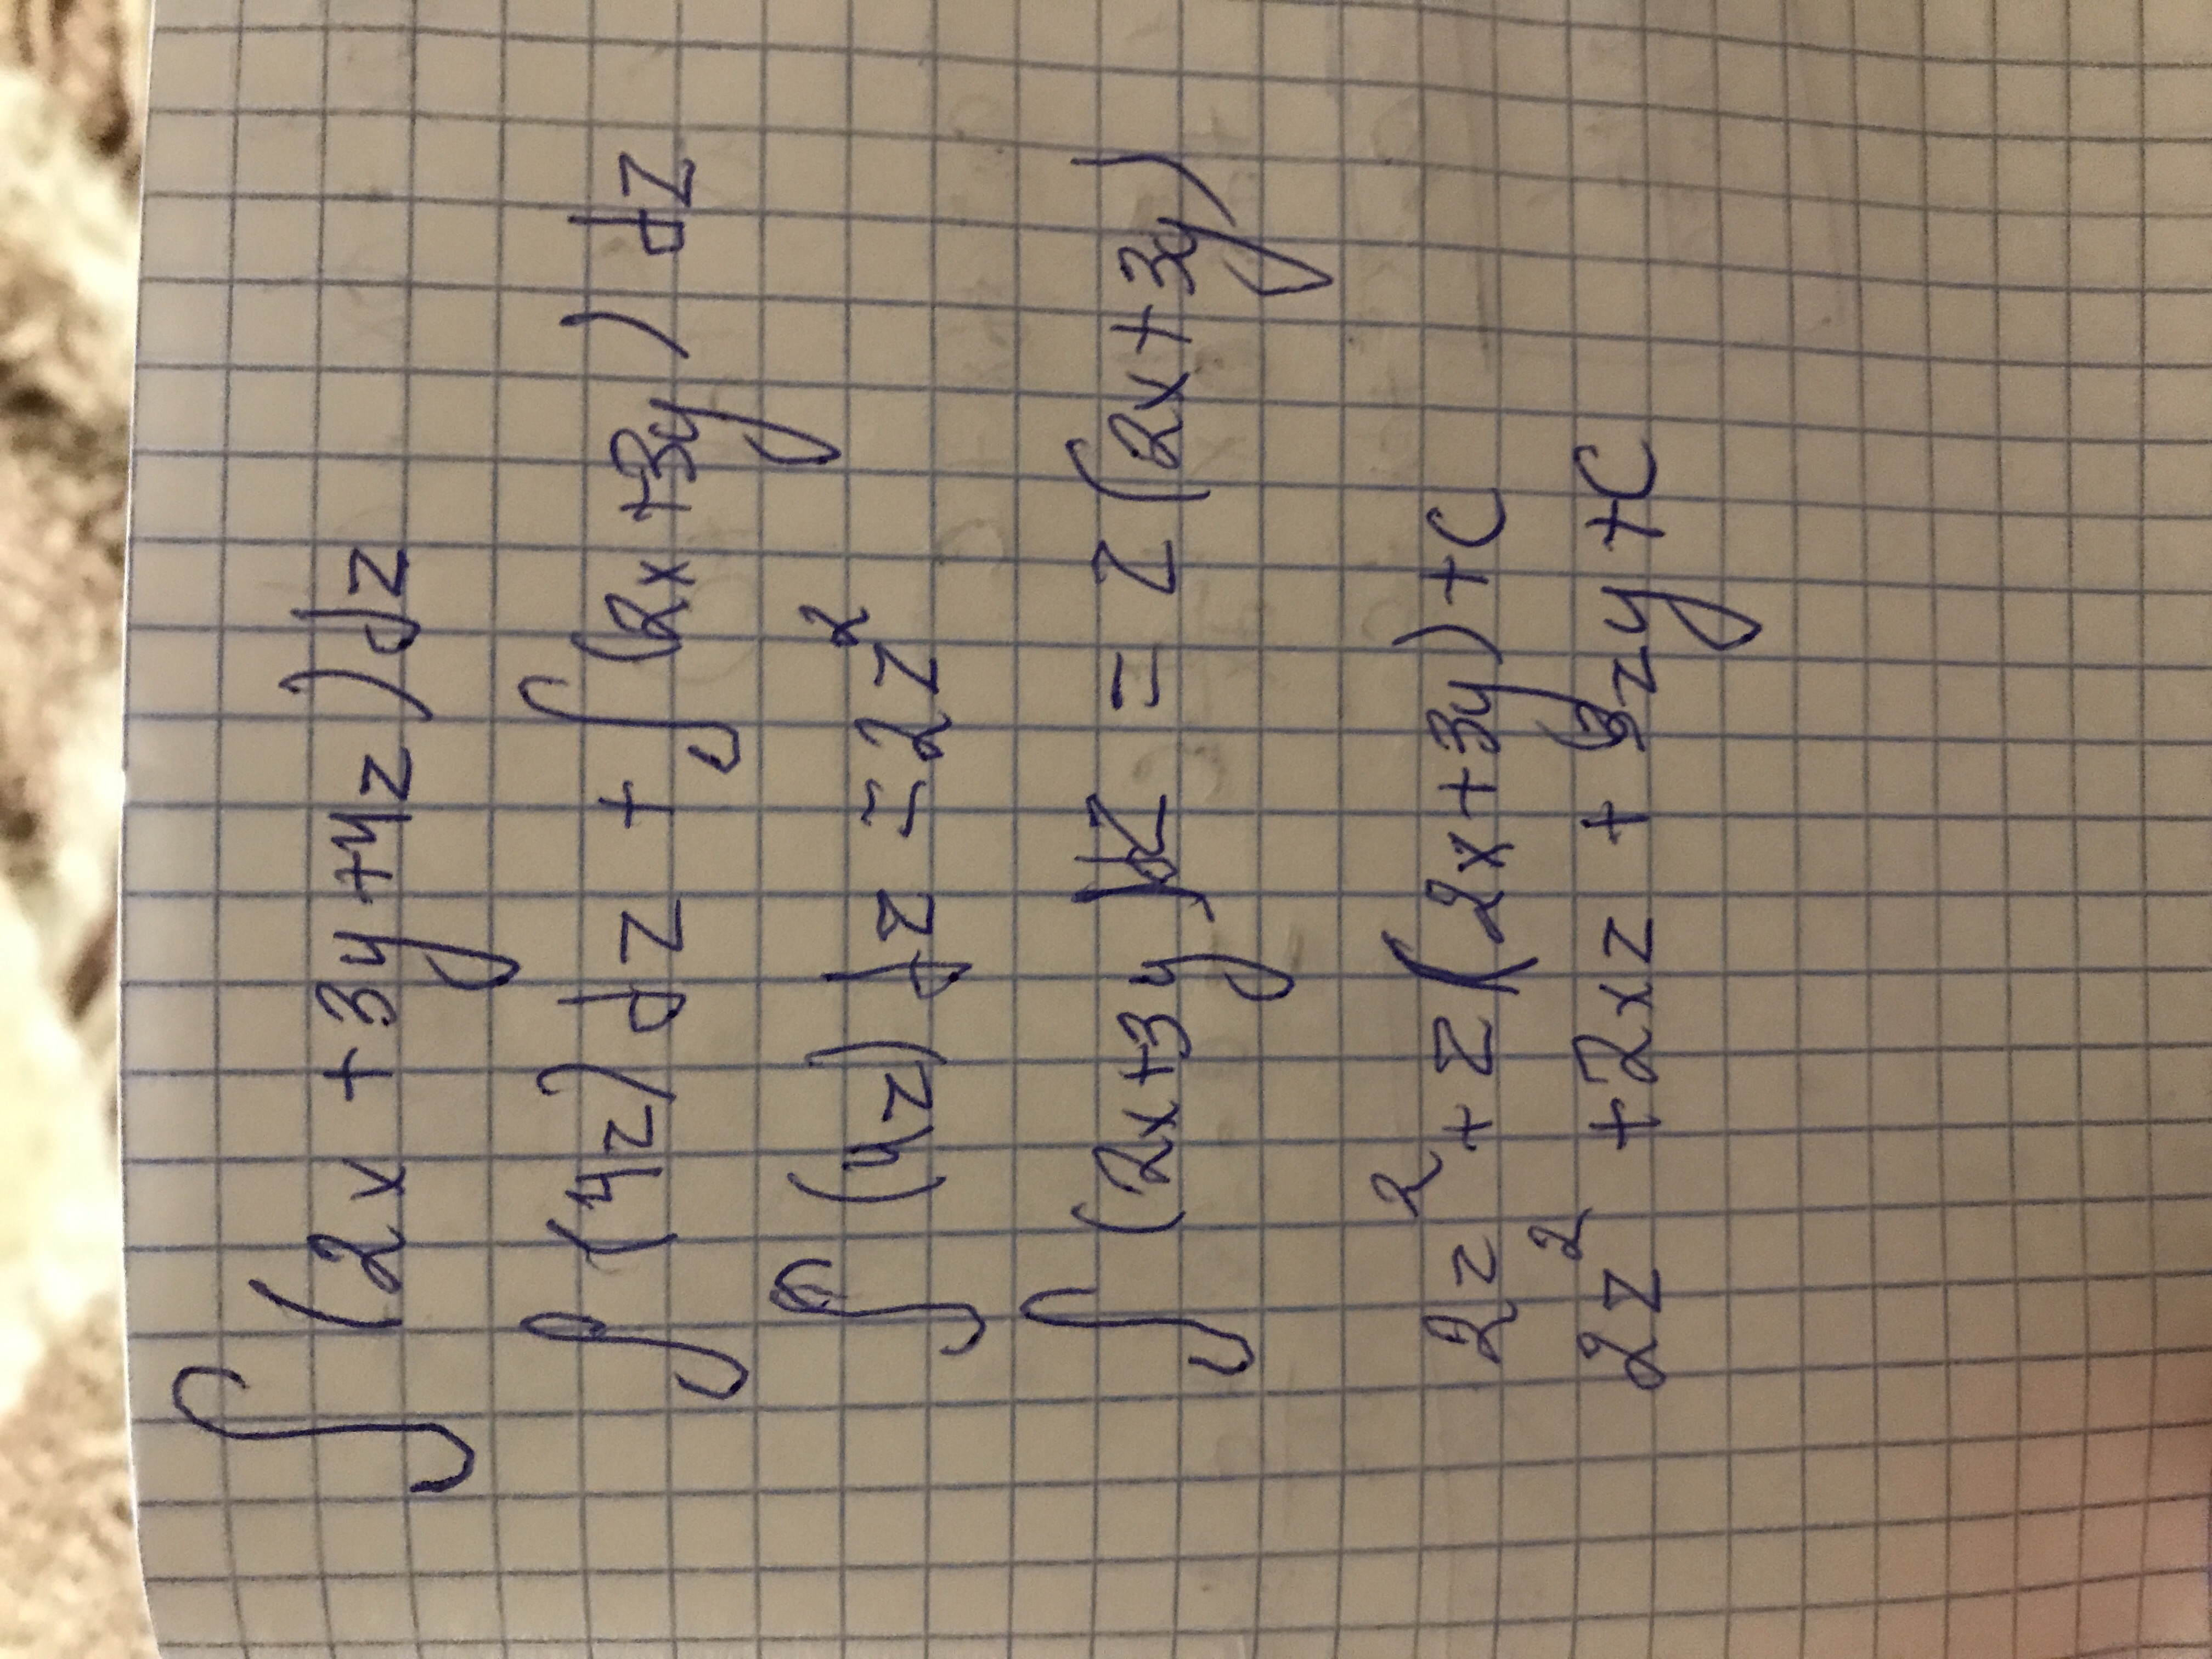 ∫(2x + 3y + 4z)dz
∫(4z)dz + ∫(2x+3y) dz
∫(4z)dz = 2z²
∫(2x+3y)dz = z(2x+3y)
2z² + z(2x+3y)+C
2z² + 2xz + 3zy + C